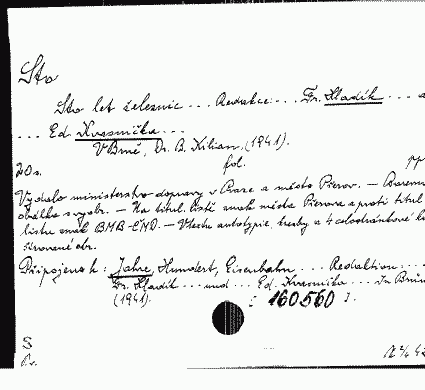 Sto
Sto let železnic ... Redakce: ... Fr. Hladík ... a
... Ed. Krasnička ...
V Brně, Dr. B. Kilian. (1941).
20 s. fol.
Vydalo ministerstvo dopravy v Praze a město Přerov. — Barevná
obálka s vyobr. — Na titul. listě znak města Přerova a proti titul.
listu znak BMB-ČMD. — Všechn autotypie, kresby a 4 celostránkové
obr.
Připojeno k: Jahre, Hundert, Eisenbahn ... Redaktion: ...
Fr. Hladík ... und ... Ed. Krasnička ... In Brünn
(1941). [160560].
S
Pv.